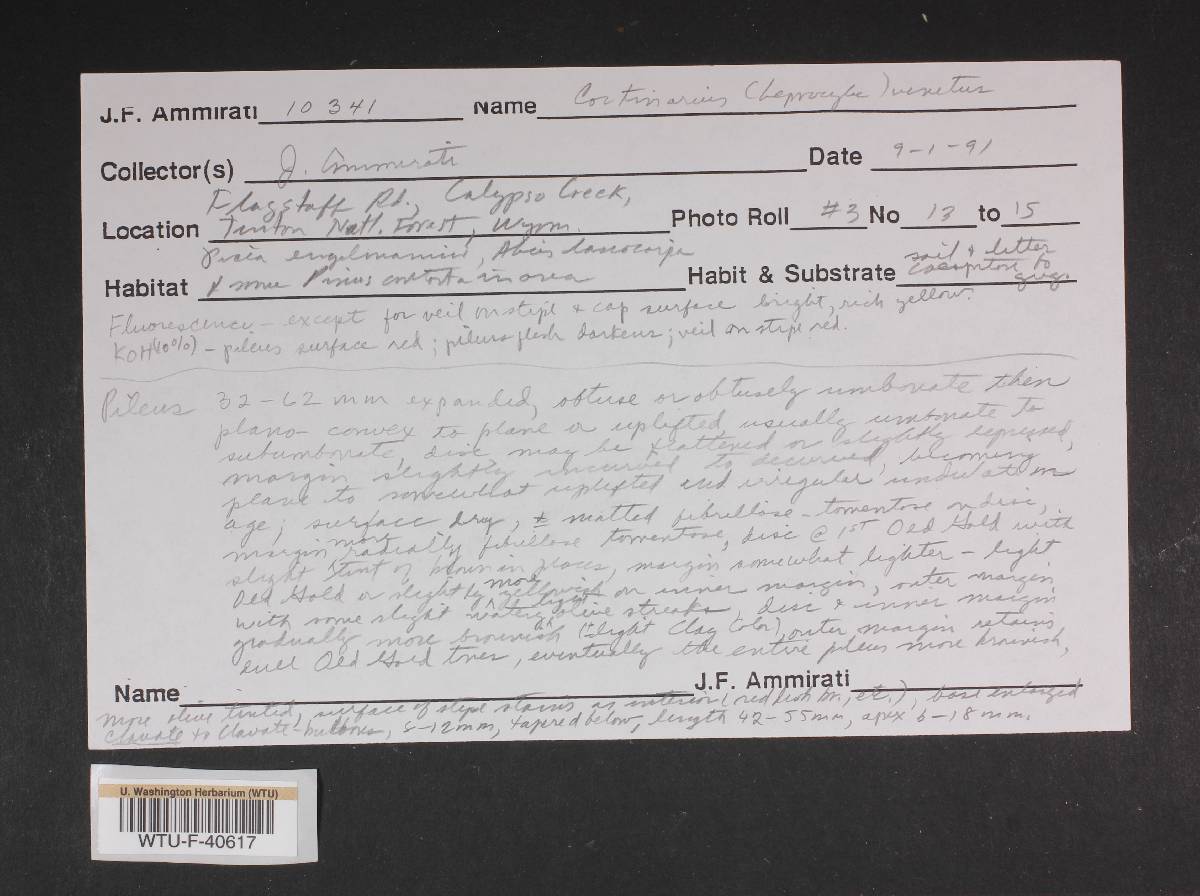 J.F. Ammirati 10341 Name Cortinarius (Leprocybe) venetus
Collector(s) J. Ammirati Date 9-1-91
Flagstaff Rd., Calypso Creek,
Location Natl. Forest, Wyom. Photo Roll #3 No 13 to 15
Picea engelmannii, Abies lasiocarpa soil & litter
Habitat & some Pinus contorta in area Habit & Substrate to greg.
Fluorescence - except for veil on stipe & cap surface bright, rich yellow.
KOH (10%) - pileus surface red; pileus flesh darkens; veil on stipe red.
Pileus 32-62 mm expanded, obtuse or obtusely umbonate then
plano-convex to plane or uplifted, usually umbonate to
subumbonate, disc may be flattened or slightly depressed,
margin slightly incurved to decurved, becoming
plane to somewhat uplifted and irregular undulate in
age; surface dry, ± matted fibrillose-tomentose on disc,
margin more radially fibrillose tomentose, disc @ 1st Old Gold with
slight tint of brown in places, margin somewhat lighter - light
Old Gold or slightly more yellowish on inner margin, outer margin
with some slight olive streaks, disc & inner margin
gradually more brownish (± slight Clay Color), outer margin retains
dull Old Gold tones, eventually the entire pileus more brownish,
Name J.F. Ammirati
more olive tinted, surface of stipe stains as interior (reddish bn., etc.), base enlarged
clavate to clavate-bulbous, 5-12mm, tapered below, length 42-55mm, apex 6-18mm.
U. Washington Herbarium (WTU)
WTU-F-40617